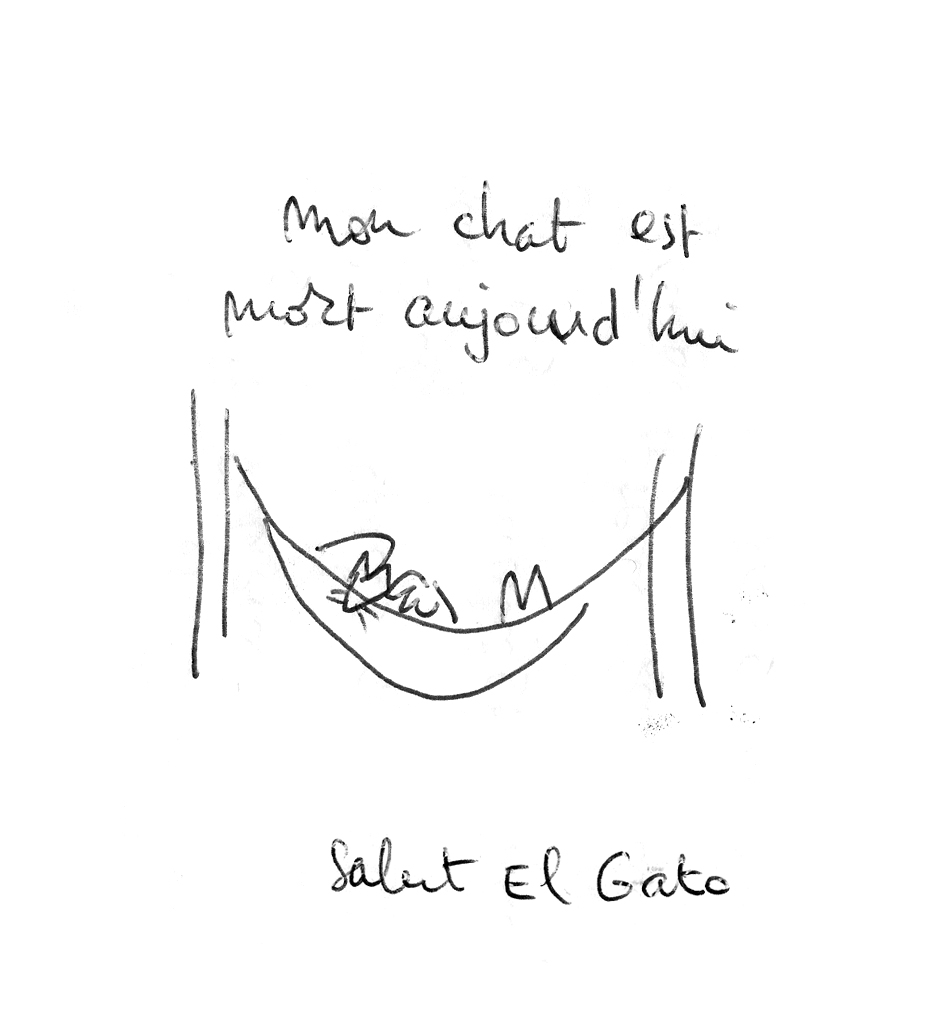 mon chat est
mort aujourd'hui
Salut El Gato